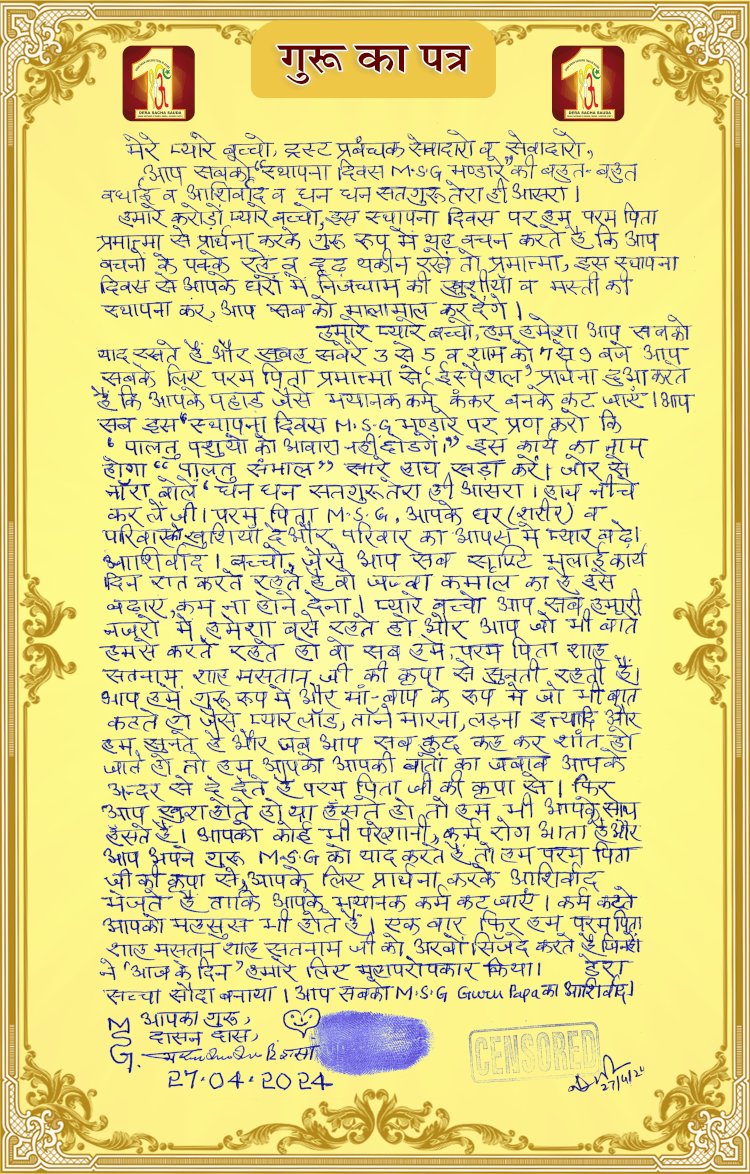 गुरू का पत्र
DERA SACHA SAUDA
DERA SACHA SAUDA
मेरे प्यारे बच्चो, ट्रस्ट प्रबंधक सेवादारो व सेवादारो,
आप सबको "स्थापना दिवस M.S.G भण्डारे" की बहुत-बहुत
बधाई व आशिर्वाद व धन धन सतगुरू तेरा ही आसरा।
हमारे करोड़ों प्यारे बच्चो, इस स्थापना दिवस पर हम परम पिता
प्रमात्मा से प्रार्थना करके गुरू रूप में यह वचन करते हैं कि आप
वचनों के पक्के रहें व दृढ़ यकीन रखें तो प्रमात्मा, इस स्थापना
दिवस से आपके घरों में निजधाम की खुशीयां व मस्ती की
स्थापना कर, आप सब को मालामाल कर देंगे।
हमारे प्यारे बच्चो, हम हमेशा आप सबको
याद रखते हैं और सुबह सवेरे 3 से 5 व शाम को 7 से 9 बजे आप
सबके लिए परम पिता प्रमात्मा से 'ईस्पैशल' प्रार्थना हुआ करते
हैं कि आपके पहाड़ जैसे भयानक कर्म कंकर बनके कट जाएं। आप
सब इस "स्थापना दिवस M.S.G भण्डारे पर प्रण करो कि
"पालतु पशुयों को आवारा नहीं छोडगें।" इस कार्य का नाम
होगा "पालतु संभाल" सारे हाथ खड़ा करें। जोर से
नॉरा बोलें 'धन धन सतगुरू तेरा ही आसरा। हाथ नीचे
कर लें जी। परम पिता M.S.G, आपके घर (शरीर) व
परिवार को खुशियां दे और परिवार का आपस में प्यार बढ़े।
आशिर्वाद। बच्चो, जैसे आप सब सृष्टि भलाई कार्य
दिन रात करते रहते हैं वो जज्बा कमाल का है इसे
बढ़ाए, कम ना होने देना। प्यारे बच्चो आप सब हमारी
नजरों में हमेशा बसे रहते हो और आप जो भी बातें
हमसे करते रहते हो वो सब हमें, परम पिता शाह
सतनाम, शाह मसतान, जी की कृपा से सुनती रहती हैं।
आप हमें गुरू रूप में और मां-बाप के रूप में जो भी बात
कहते हो जैसे प्यार लॉड, तॉने मारना, लड़ना इत्यादि और
हम सुनते हैं और जब आप सब कुछ कह कर शांत हो
जाते हो तो हम आपको आपकी बातों का जवाब आपके
अन्दर से दे देते हैं परम पिता जी की कृपा से। फिर
आप खुश होते हो या हँसते हो तो हम भी आपके साथ
हँसते हैं। आपको कोई भी परेशानी, कर्म रोग आता है और
आप अपने गुरू M.S.G को याद करते हैं तो हम परम पिता
जी की कृपा से, आपके लिए प्रार्थना करके आशिर्वाद
भेजते हैं ताकि आपके भयानक कर्म कट जाएं। कर्म कटते
आपको महसुस भी होते हैं। एक बार फिर हम परम पिता
शाह मसतान शाह सतनाम जी को अरबों सिजदे करते हैं जिन्होंने
ने 'आज के दिन' हमारे लिए महापरोपकार किया। डेरा
सच्चा सौदा बनाया। आप सबको M.S.G Guru Papa का आशिर्वाद।
M आपका गुरू,
S दासन दास,
G.
27.04.2024
CENSORED
27/4/24